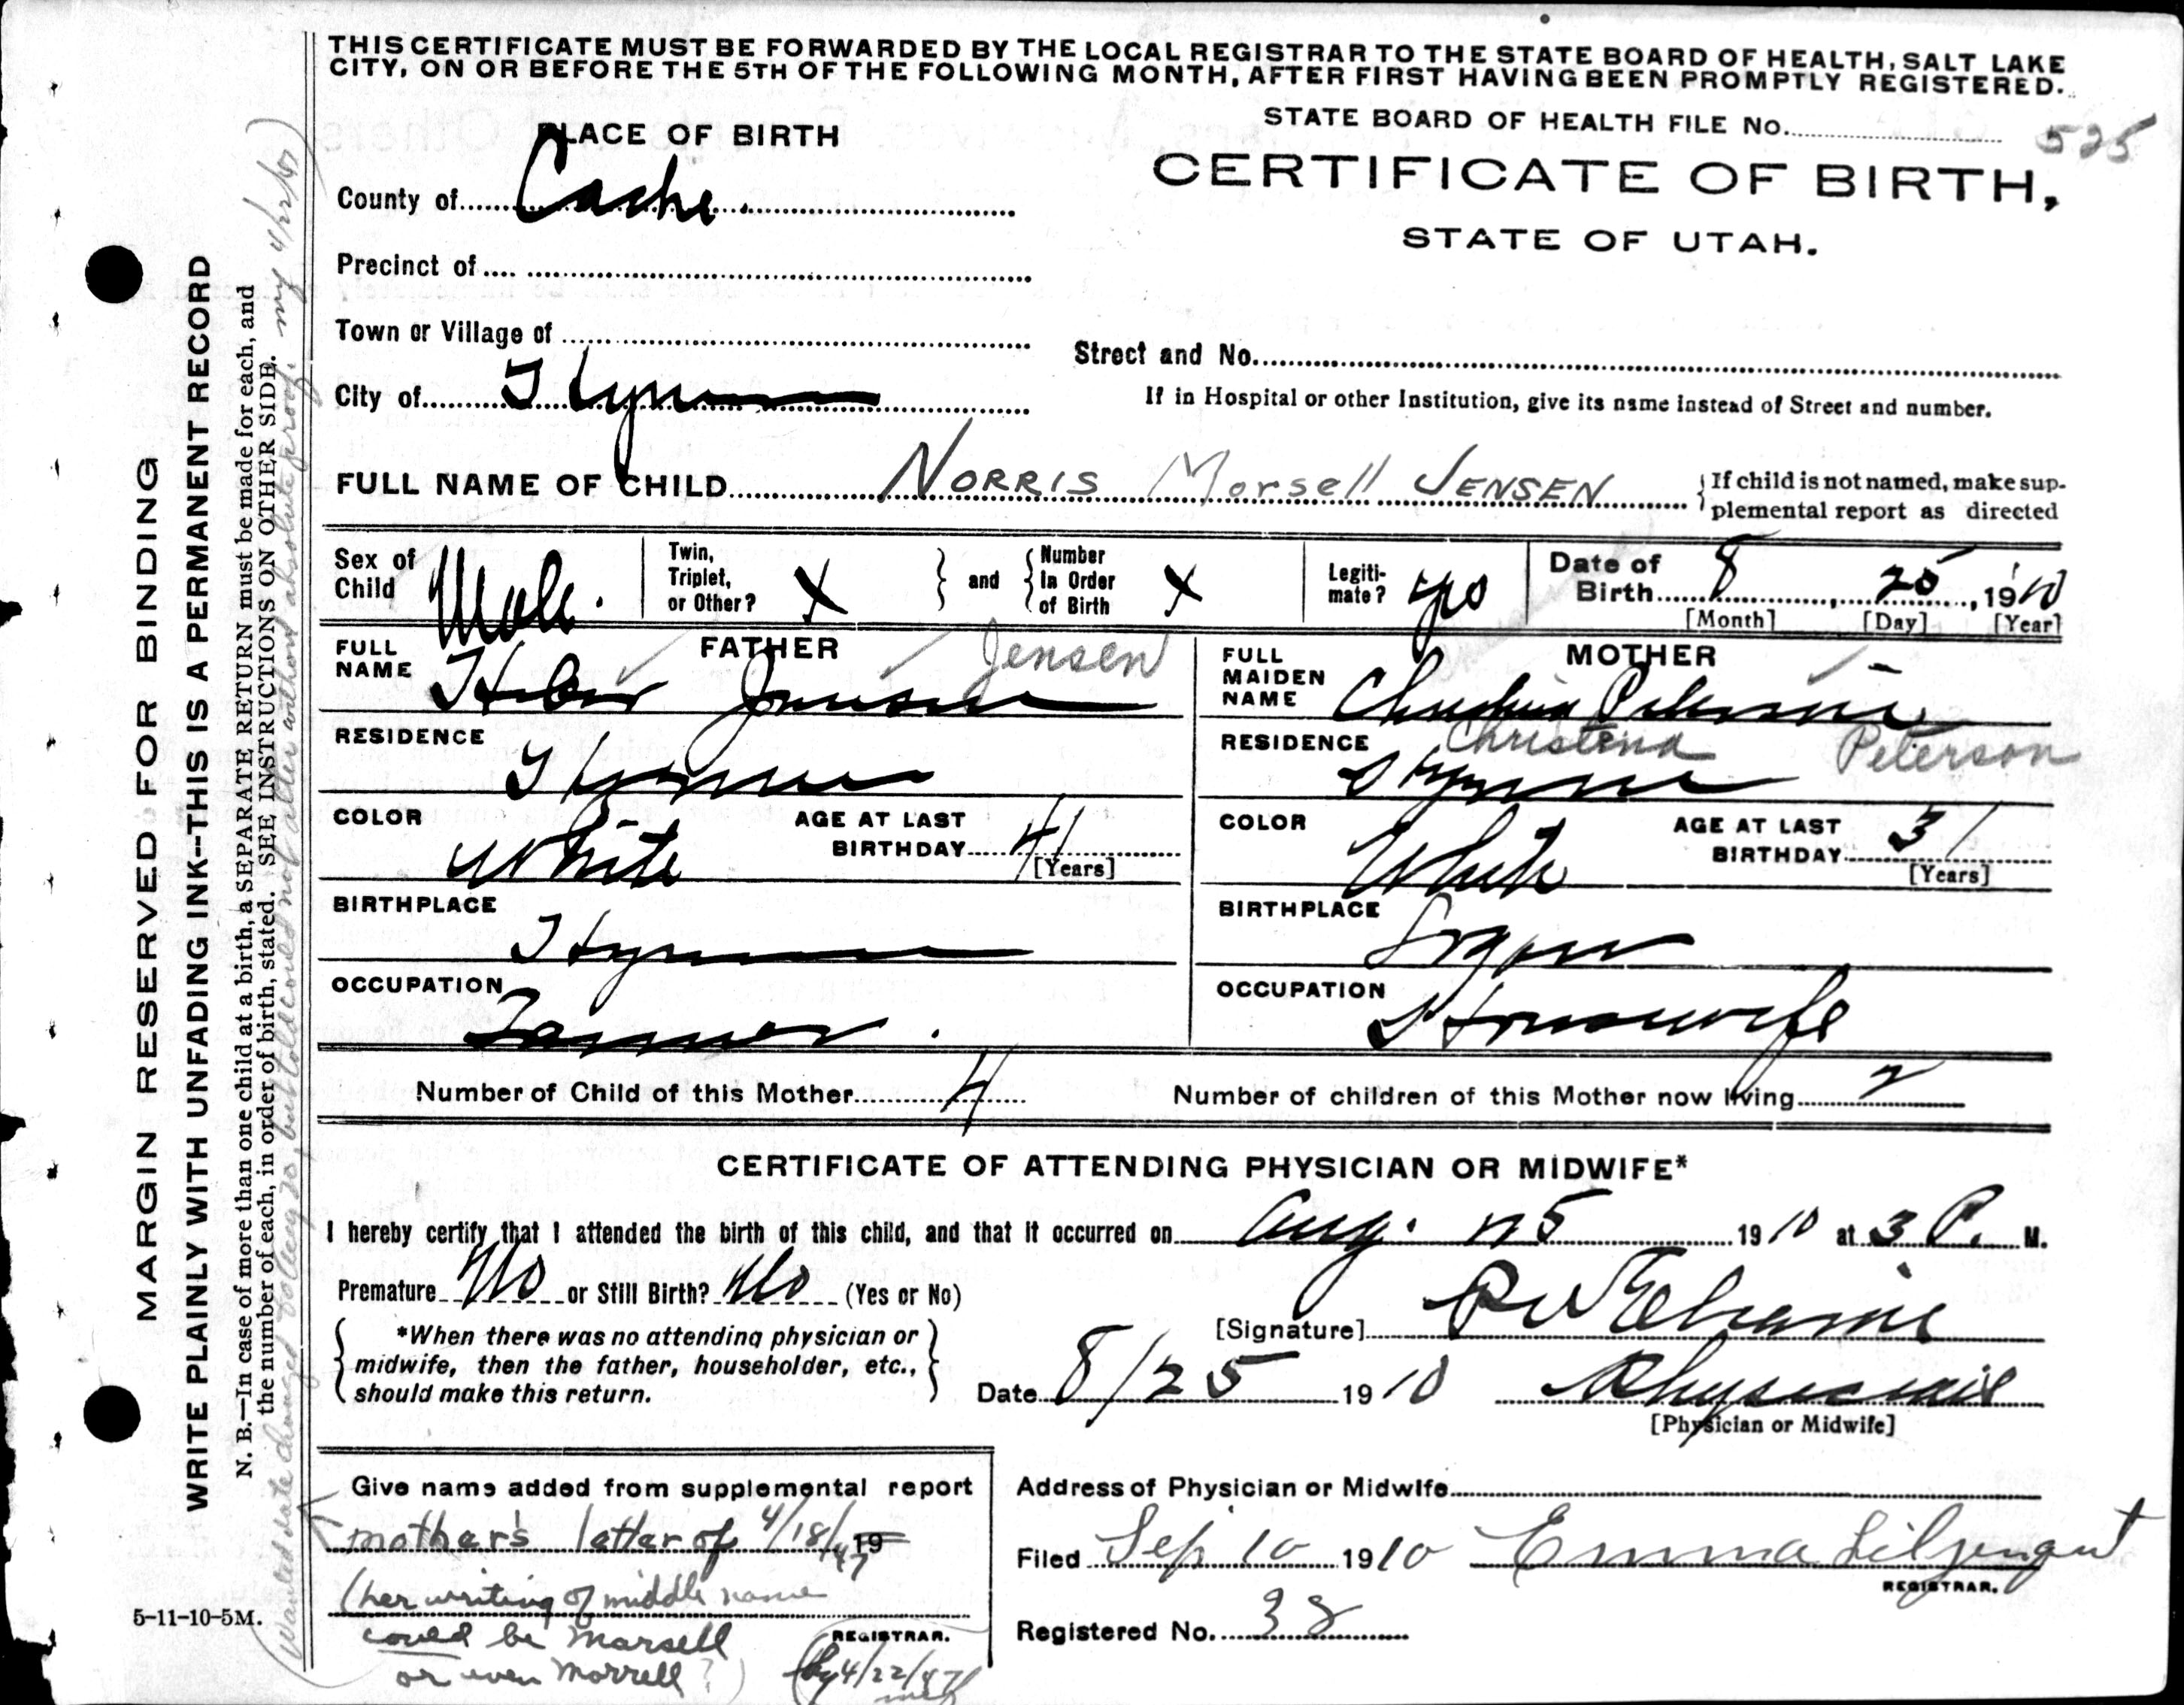 THIS CERTIFICATE MUST BE FORWARDED BY THE LOCAL REGISTRAR TO THE STATE BOARD OF HEALTH, SALT LAKE
CITY, ON OR BEFORE THE 5TH OF THE FOLLOWING MONTH, AFTER FIRST HAVING BEEN PROMPTLY REGISTERED.
STATE BOARD OF HEALTH FILE No. 525
PLACE OF BIRTH
CERTIFICATE OF BIRTH,
STATE OF UTAH.
County of Cache.
Precinct of
Town or Village of
Street and No.
City of Hyrum
If in Hospital or other Institution, give its name instead of Street and number.
FULL NAME OF CHILD NORRIS Morsell JENSEN
If child is not named, make sup-
plemental report as directed
Sex of Child Male.
Twin, Triplet, or Other? X
and
Number In Order of Birth X
Legiti-mate? yes
Date of Birth 8, 25, 1910
[Month] [Day] [Year]
FATHER
FULL NAME Heber Jensen Jensen
RESIDENCE Hyrum
COLOR White
AGE AT LAST BIRTHDAY 41
[Years]
BIRTHPLACE Hyrum
OCCUPATION Farmer.
MOTHER
FULL MAIDEN NAME Christina
Christena Peterson
RESIDENCE Hyrum
COLOR White
AGE AT LAST BIRTHDAY 31
[Years]
BIRTHPLACE Logan
OCCUPATION Housewife
Number of Child of this Mother 4
Number of children of this Mother now living 2
CERTIFICATE OF ATTENDING PHYSICIAN OR MIDWIFE*
I hereby certify that I attended the birth of this child, and that it occurred on Aug. 25 1910 at 3 P. M.
Premature No or Still Birth? No (Yes or No)
*When there was no attending physician or
midwife, then the father, householder, etc.,
should make this return.
[Signature]
Date 8/25 1910
Physician
[Physician or Midwife]
Give name added from supplemental report
mother's letter of 4/18/47 19
(her writing of middle name
could be Marsell
or even Morrell?)
REGISTRAR.
4/22/47
Address of Physician or Midwife
Filed Sep 10 1910 Emma Liljenquist
REGISTRAR.
Registered No. 38
5-11-10-5M.
MARGIN RESERVED FOR BINDING
WRITE PLAINLY WITH UNFADING INK--THIS IS A PERMANENT RECORD
N. B.—In case of more than one child at a birth, a SEPARATE RETURN must be made for each, and
the number of each, in order of birth, stated. SEE INSTRUCTIONS ON OTHER SIDE.
(Wanted date changed to Aug 20, but told could not alter without absolute proof. 4/22/47)